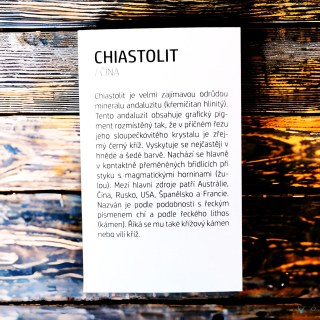 CHIASTOLIT
/ ČÍNA
Chiastolit je velmi zajímavou odrůdou
minerálu andaluzitu (křemičitan hlinitý).
Tento andaluzit obsahuje grafický pig-
ment rozmístěný tak, že v příčném řezu
jeho sloupečkovitého krystalu je zřej-
mý černý kříž. Vyskytuje se nejčastěji v
hnědé a šedé barvě. Nachází se hlavně
v kontaktně přeměněných břidlicích při
styku s magmatickými horninami (žu-
lou). Mezi hlavní zdroje patří Austrálie,
Čína, Rusko, USA, Španělsko a Francie.
Nazván je podle podobnosti s řeckým
písmenem chí a podle řeckého lithos
(kámen). Říká se mu také křížový kámen
nebo vílí kříž.